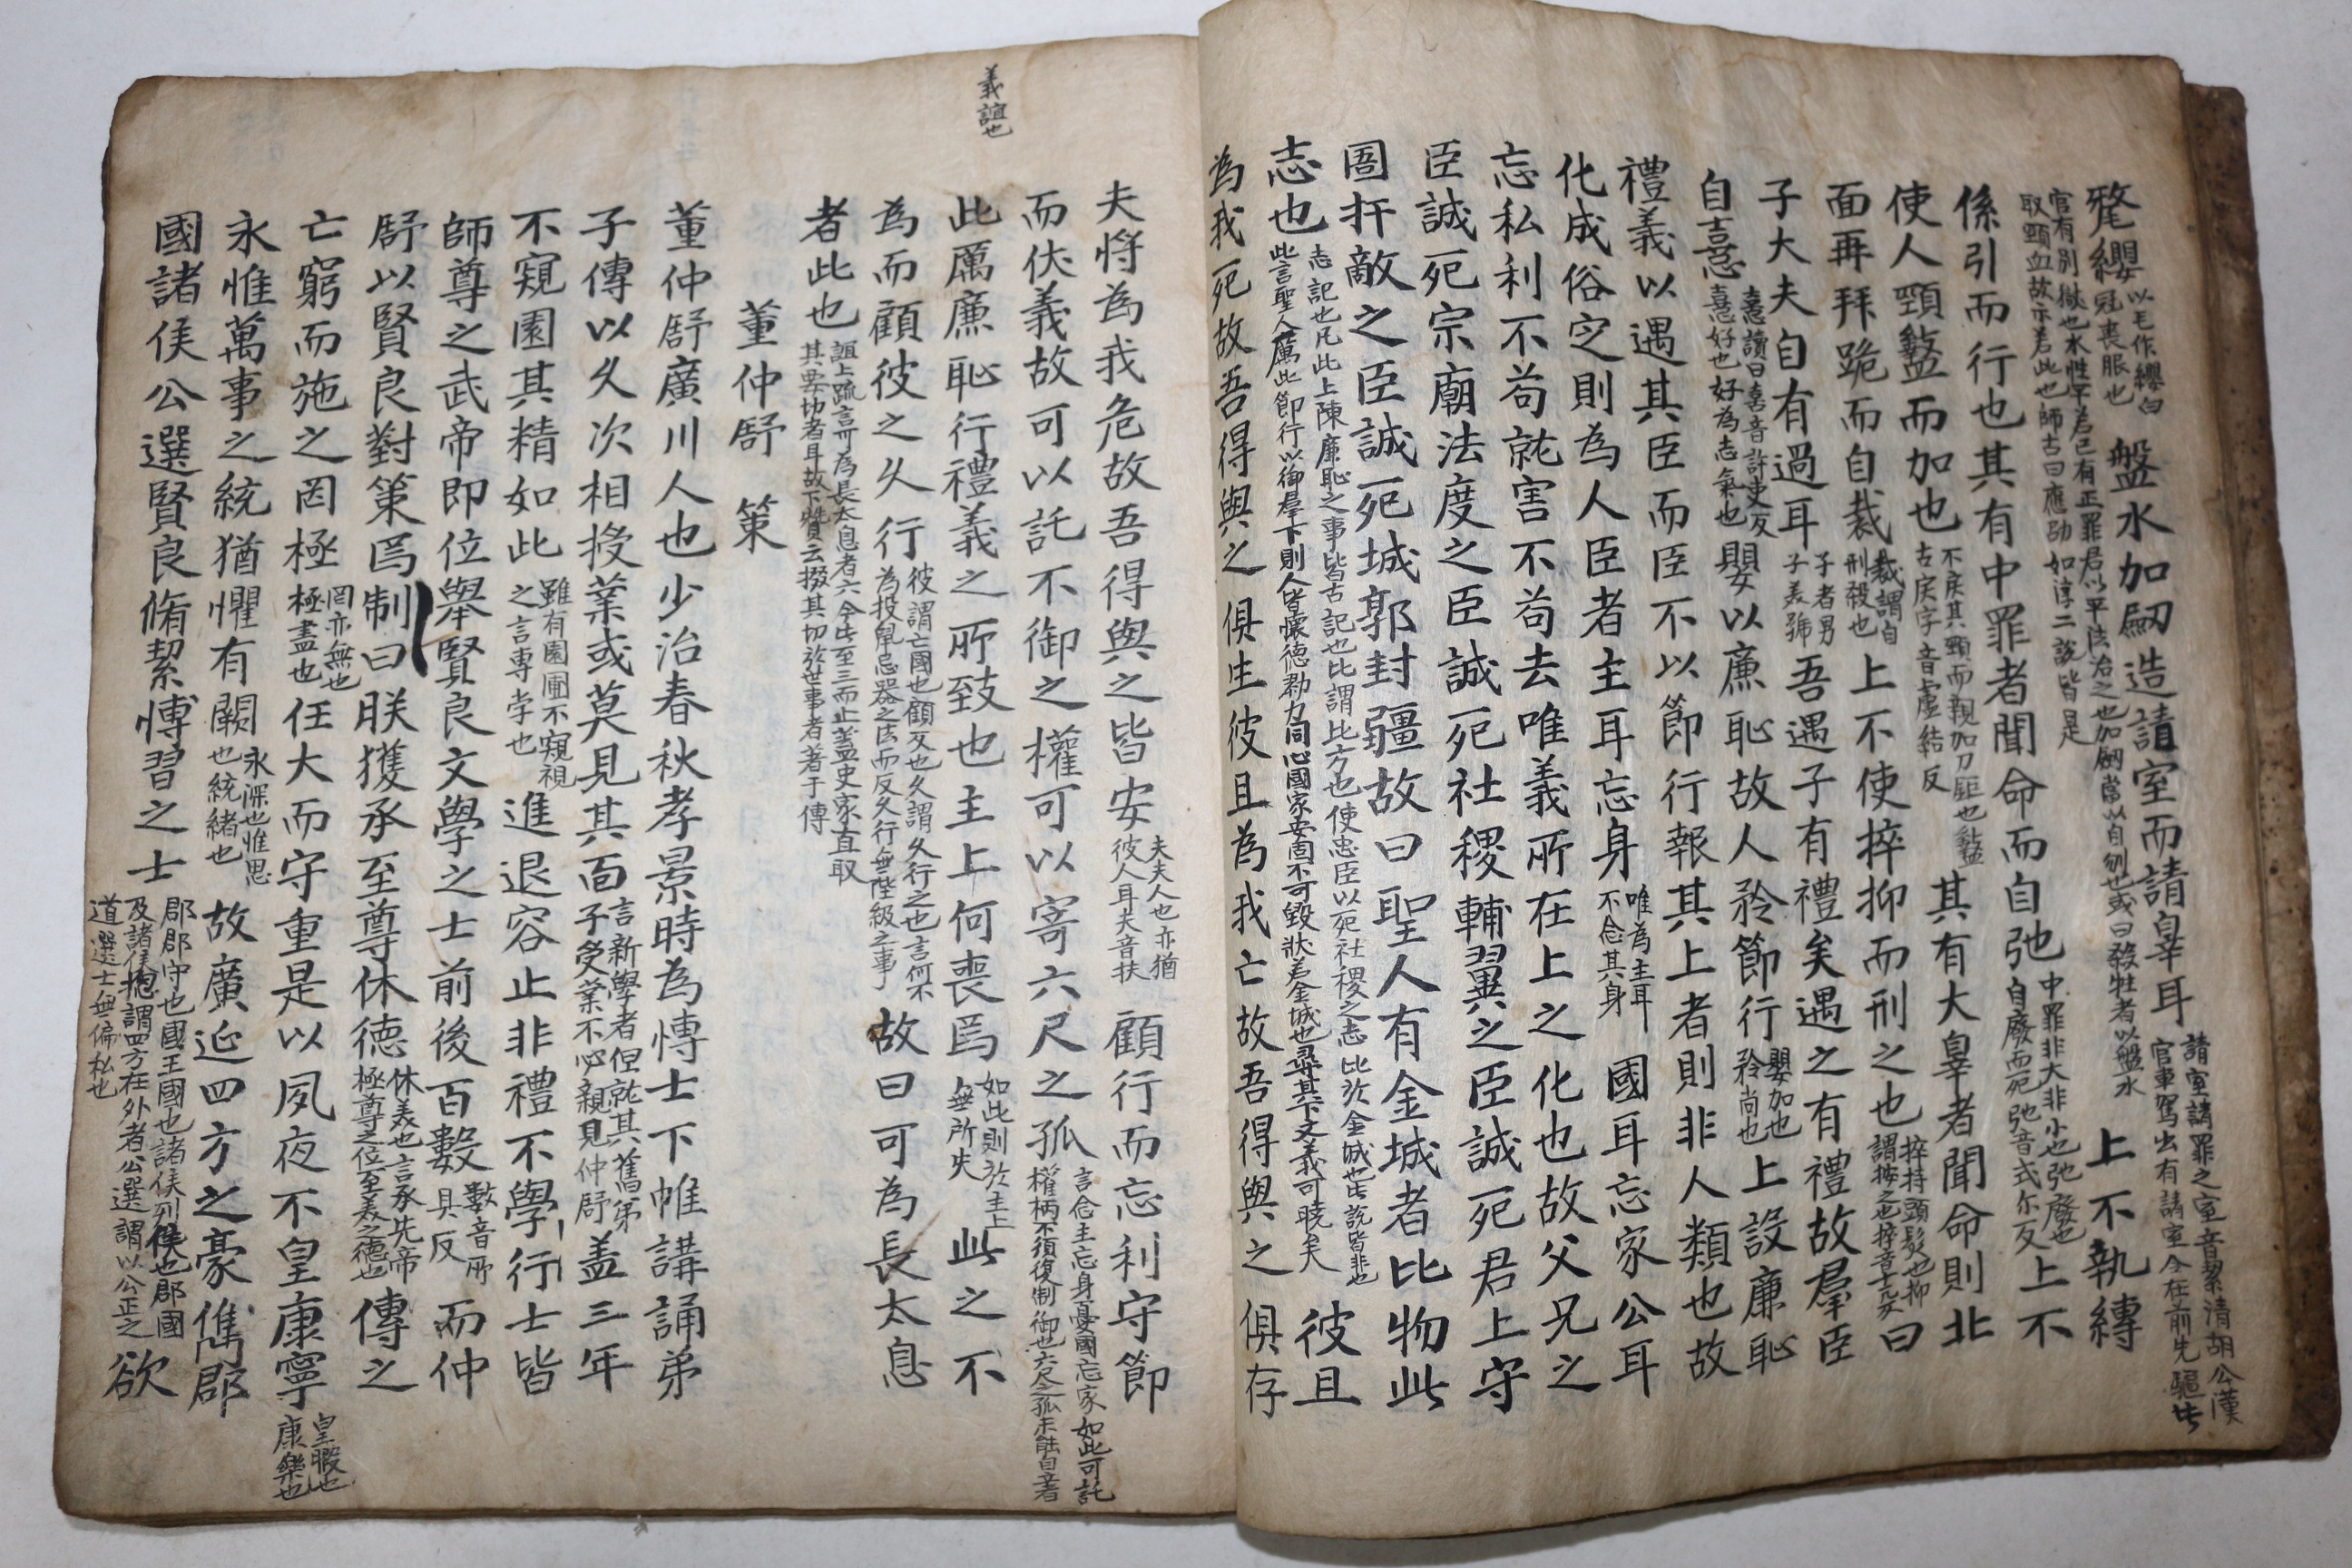 氂纓以毛作纓白冠喪服也盤水加劒造請室而請辠耳請室請罪之室音絜清胡公漢官車駕出有請室令在前先驅此
官有別獄也水性平若己有正罪君以平法治之也加劒當以自刎也或曰殺牲者以盤水取頸血故示若此也師古曰應劭如淳二說皆是上不執縛
係引而行也其有中罪者聞命而自弛中罪非大非小也弛廢也自廢而死弛音式尔反上不
使人頸盭而加也不戾其頸而親加刀鉅也盭古戾字音盧結反其有大辠者聞命則北
面再拜跪而自裁裁謂自刑殺也上不使捽抑而刑之也捽持頭髮也抑謂按之也捽音才兀反曰
子大夫自有過耳子者男子美號吾遇子有禮矣遇之有禮故羣臣
自憙憙讀曰喜音許吏反憙好也好為志氣也嬰以廉恥故人矜節行嬰加也矜尚也上設廉恥
禮義以遇其臣而臣不以節行報其上者則非人類也故
化成俗定則為人臣者主耳忘身唯為主耳不念其身國耳忘家公耳
忘私利不苟就害不苟去唯義所在上之化也故父兄之
臣誠死宗廟法度之臣誠死社稷輔翼之臣誠死君上守
圄扞敵之臣誠死城郭封疆故曰聖人有金城者比物此
志也志記也凡此上陳廉恥之事皆古記也比謂比方也使忠臣以死社稷之志比於金城也此說皆非也此言聖人厲此節行以御羣下則人皆懷德勠力同心國家安固不可毀狀若金城也尋其下文義可曉矣彼且
為我死故吾得與之俱生彼且為我亡故吾得與之俱存
夫將為我危故吾得與之皆安夫夫人也亦猶彼人耳夫音扶顧行而忘利守節
而伏義故可以託不御之權可以寄六尺之孤言念主忘身憂國忘家如此可託權柄不須復制御也六尺之孤未能自立者
義誼也
此厲廉恥行禮義之所致也主上何喪焉如此則於主上無所失此之不
為而顧彼之久行彼謂亡國也顧反也久謂久行之也言何不為投鼠忌器之法而反久行無陛級之事故曰可為長太息
者此也誼上疏言可為長太息者六今此至三而止蓋史家直取其要切者耳故下贊云掇其切於世事者著于傳
董仲舒　策
董仲舒廣川人也少治春秋孝景時為博士下帷講誦弟
子傳以久次相授業或莫見其面言新學者但就其舊弟子受業不必親見仲舒盖三年
不窺園其精如此雖有園圃不窺視之言專学也進退容止非禮不學行士皆
師尊之武帝即位舉賢良文學之士前後百數數音所具反而仲
舒以賢良對策焉制曰朕獲承至尊休德休美也言承先帝極尊之位至美之德也傳之
亡窮而施之罔極罔亦無也極盡也任大而守重是以夙夜不皇康寧皇暇也康樂也
永惟萬事之統猶懼有闕永深也惟思也統緒也故廣延四方之豪儁郡
國諸侯公選賢良脩絜博習之士郡郡守也國王國也諸侯列侯也郡國及諸侯揔謂四方在外者公選謂以公正之道選士無偏私也欲